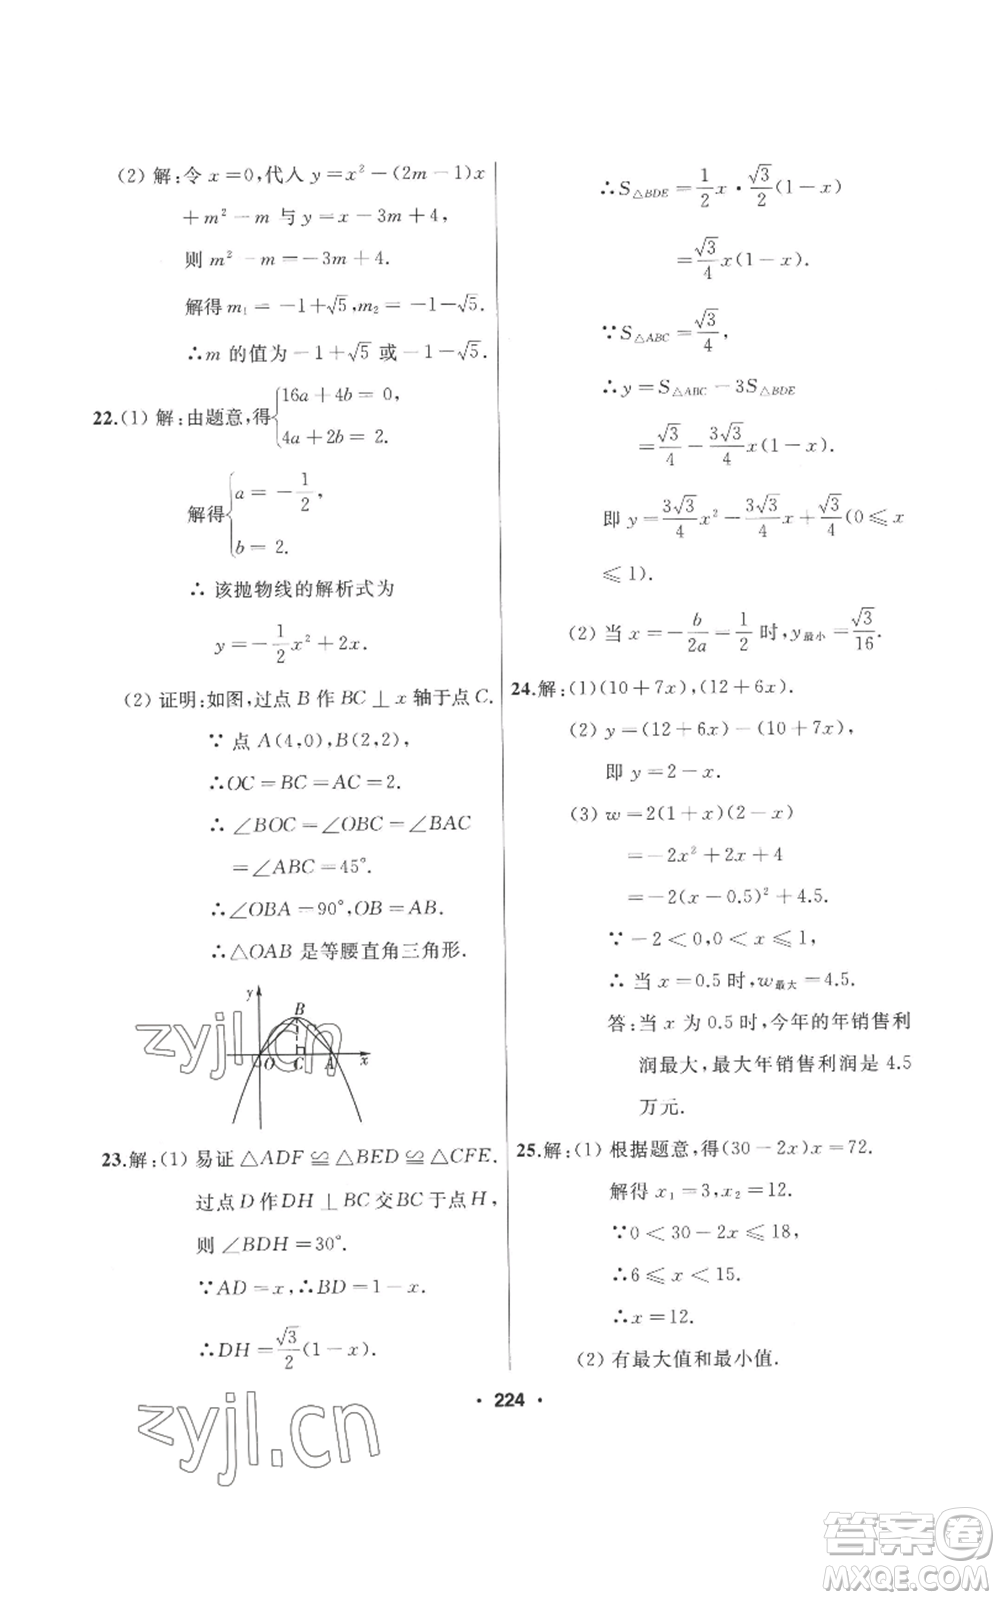 (2) 解:令 x=0,代入 y=x²-(2m-1)x
+m²-m 与 y=x-3m+4,
则 m²-m=-3m+4.
解得 m₁=-1+√5,m₂=-1-√5.
∴m 的值为-1+√5或-1-√5.
22.(1) 解:由题意,得{16a+4b=0,
4a+2b=2.
解得{a=-1/2,
b=2.
∴ 该抛物线的解析式为
y=-1/2x²+2x.
(2) 证明:如图,过点 B 作 BC⊥x 轴于点 C.
∵ 点 A(4,0),B(2,2),
∴OC=BC=AC=2.
∴∠BOC=∠OBC=∠BAC
=∠ABC=45°.
∴∠OBA=90°,OB=AB.
∴△OAB 是等腰直角三角形.
y
B
O C A x
zyjl.cn
23.解:(1) 易证△ADF≌△BED≌△CFE.
过点 D 作 DH⊥BC 交 BC 于点 H,
则∠BDH=30°.
∵AD=x,∴BD=1-x.
∴DH=√3/2(1-x).
zyjl.cn
∴S△BDE=1/2x·√3/2(1-x)
=√3/4x(1-x).
∵S△ABC=√3/4,
∴y=S△ABC-3S△BDE
=√3/4-3√3/4x(1-x).
即 y=3√3/4x²-3√3/4x+√3/4(0≤x
≤1).
(2) 当 x=-b/2a=1/2 时,y最小=√3/16.
24.解:(1)(10+7x),(12+6x).
(2) y=(12+6x)-(10+7x),
即 y=2-x.
(3) w=2(1+x)(2-x)
=-2x²+2x+4
=-2(x-0.5)²+4.5.
∵-2<0,0<x≤1,
∴ 当 x=0.5 时,w最大=4.5.
答:当 x 为 0.5 时,今年的年销售利
润最大,最大年销售利润是 4.5
万元.
25.解:(1) 根据题意,得(30-2x)x=72.
解得 x₁=3,x₂=12.
∵0<30-2x≤18,
∴6≤x<15.
∴x=12.
(2) 有最大值和最小值.
· 224 ·
答案圈
MXQE.COM